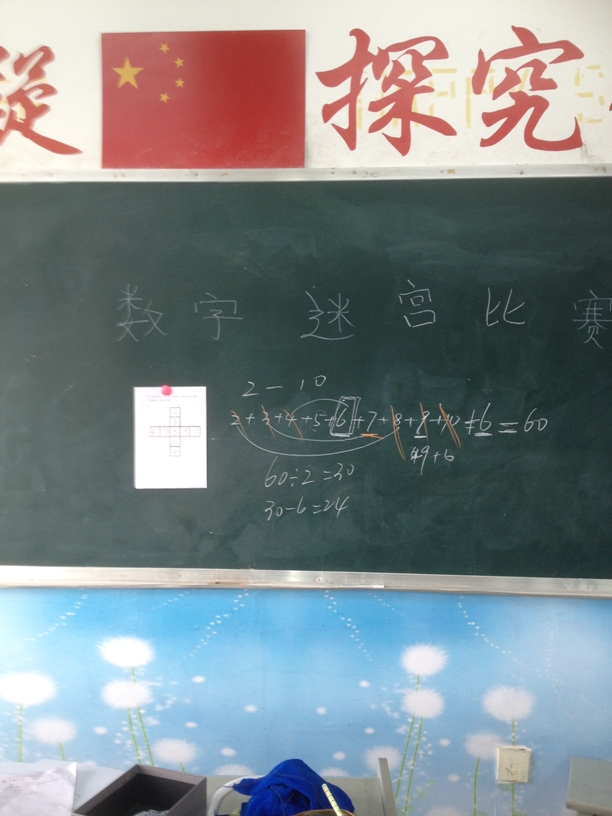 探究
数字迷宫比赛
2—10
2+3+4+5+6+7+8+9+10+6=60
49+6
60÷2=30
30-6=24